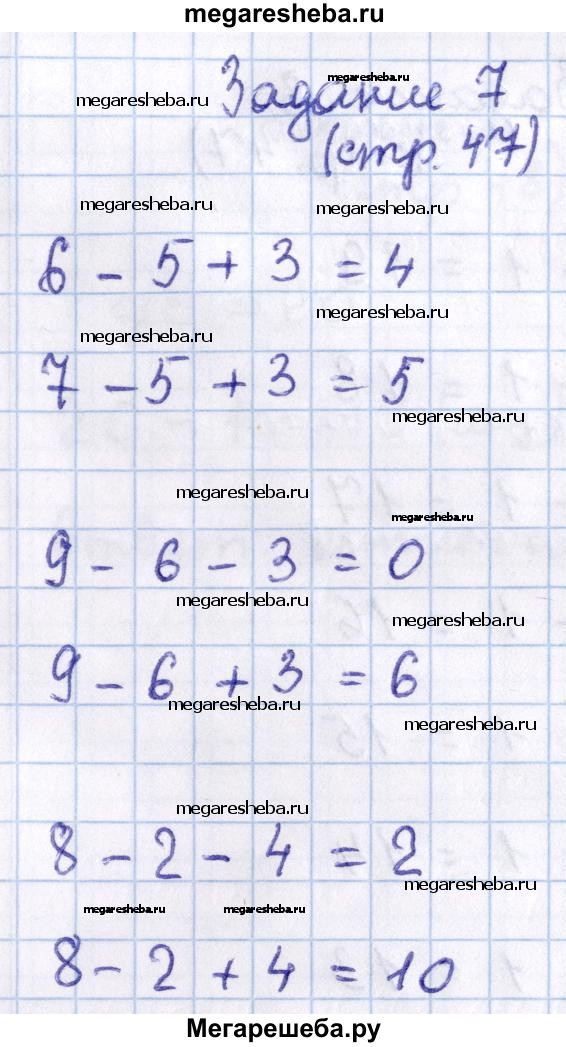 megaresheba.ru
Задание 7
megaresheba.ru
megaresheba.ru
(стр. 47)
megaresheba.ru
megaresheba.ru
6 - 5 + 3 = 4
megaresheba.ru
megaresheba.ru
7 - 5 + 3 = 5
megaresheba.ru
megaresheba.ru
megaresheba.ru
9 - 6 - 3 = 0
megaresheba.ru
megaresheba.ru
9 - 6 + 3 = 6
megaresheba.ru
megaresheba.ru
megaresheba.ru
8 - 2 - 4 = 2
megaresheba.ru
megaresheba.ru
megaresheba.ru
8 - 2 + 4 = 10
Мегарешеба.ру